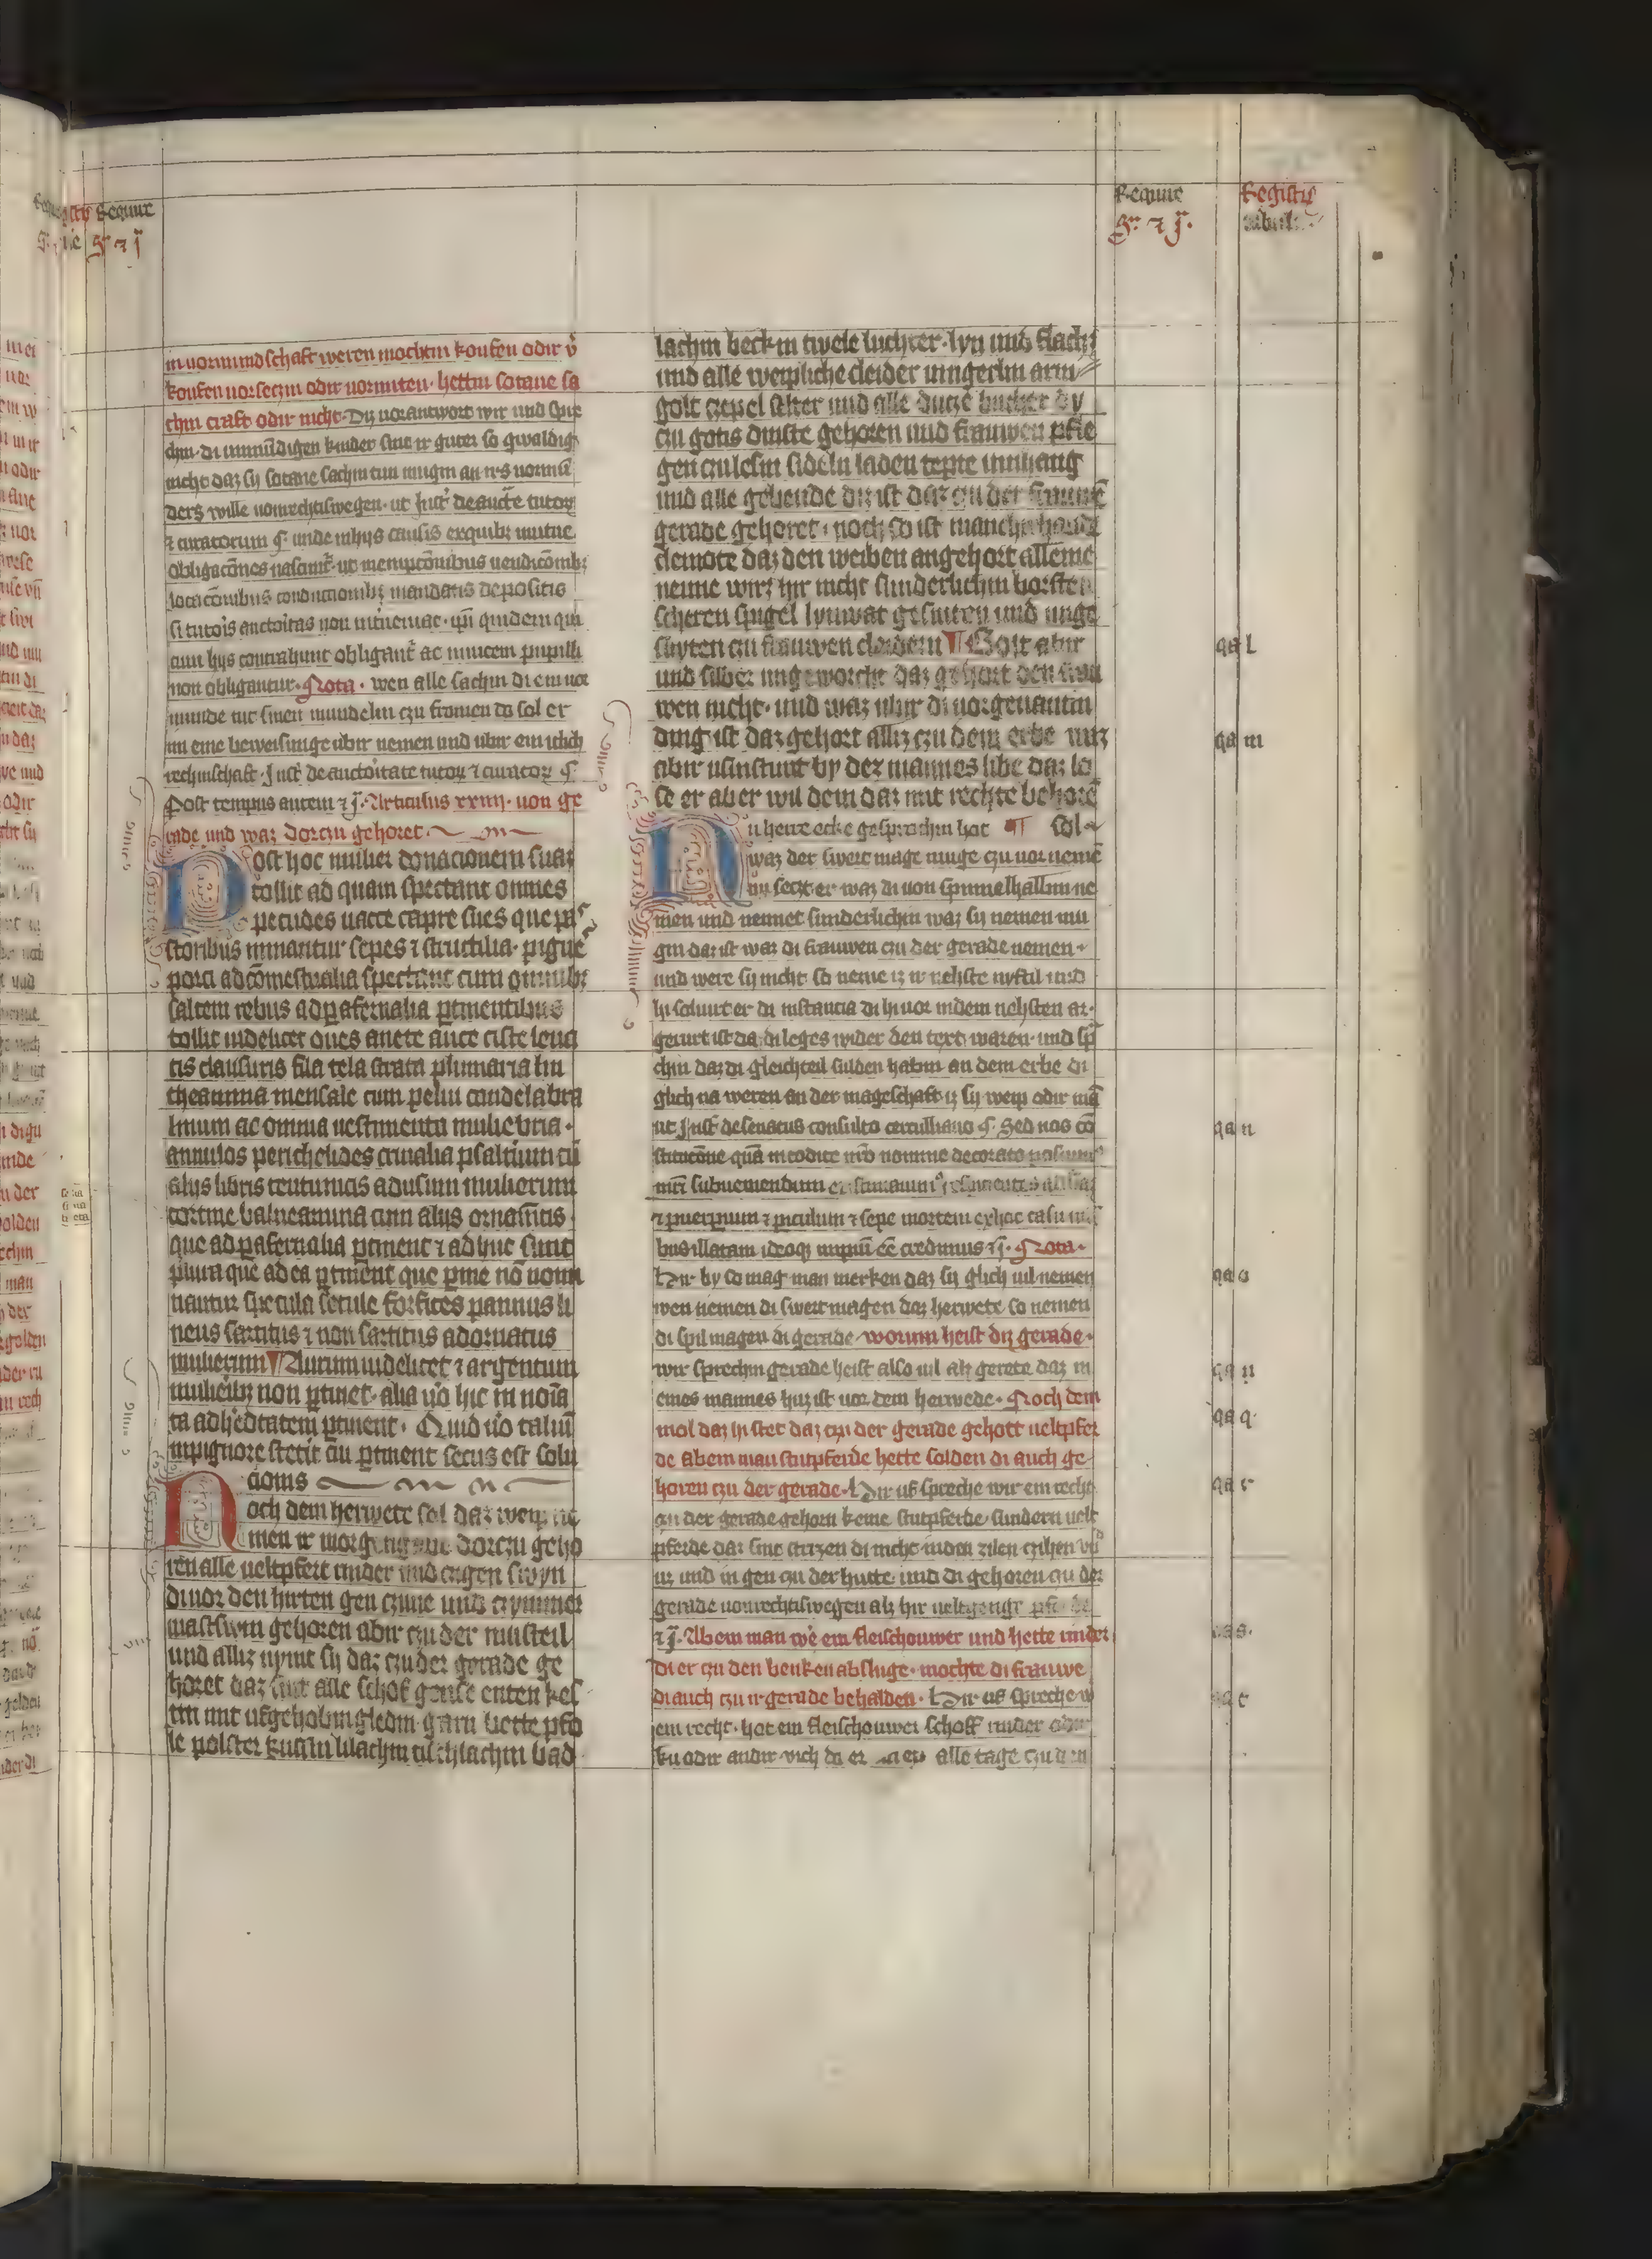 Require
Registrum
in uormundschaft weren mochtin koufen odir v̉
koufen uorseczin odir uormiten · hettin sotane sa
chin craft odir nicht · Diz uorantwort wir und spre
chin · di unmündigen kinder sint ir gutez so gwaldig
nicht daz sy sotane sachin tun mugin an irs uormu͂
ders wille uonrechtiswegen · ut Inst̉ de auct̉e tutoꝝ
⁊ curatorum §· unde in hijs causis ex quibꝫ mutue
obligac̄ones nascunt̉ · ut in empc̄onibus uendic̄onibꝫ
locac̄onibus conductionibꝫ mandatis depositis
si tutoris auctoritas non interueniat · ipī quidem qui
cum hijs contrahunt obligant̉ at inuicem pupilli
non obligantur · Nota · wen alle sachin di ein uor
munde tut sinen mundelin czu fromen do sol er
im eine beweisunge ubir nemen und ubir ein iclich
rechinschaft · Inst̉ de auctoritate tutoꝝ ⁊ curatoꝝ §·
Post tempus autem ⁊ĵ· Articulus xxiiij · uon ge
rade und waz dorczu gehoret
Post hoc mulier donacionem suaꝫ
tollit ad quam spectant omnes
pecudes uacce capre sues que pa
storibus minantur sepes ⁊ structilia · pigue
porci ad c̄omestualia spectant cum omnibꝫ
saltem rebus ad ꝑafernalia ꝑtinentibus
tollit uidelicet oues anete auce ciste leua
tis clausuris fila tela strata plumaria lin
theamina mensale cum pelui candelabra
linium ac omnia uestimenta muliebria ·
annulos perichelides crinalia psalterium cū
alijs libris teutunicis ad usum mulierum
cortine balneamina cum alijs ornam̄tis
que ad ꝑafernalia ꝑtinent ⁊ adhuc sunt
plura que ad ea ꝑtinent que ꝑme nō nomi
nantur specula setule forfices pannus li
neus sartitus ⁊ non sartitus ad ornatus
mulierum ¶ Aurum uidelicet ⁊ argentum
mulieribꝫ non ꝑtinet · alia v̉o hic in noīa
ta ad h̉editatem ꝑtinent · Quid v̉o taliū
inpignore stetit cui ꝑtinent secus est solu
cionis
Noch dem herwete sol daz weip ne
men ir morgengabe dorczu geho
ren alle ueltpfert rinder und czigen swyn
di uor den hirten gen czune und czymmer
mastswin gehoren abir czu der musteil
und alliz nymt sy daz czu der gerade ge
horet daz sint alle schof gense enten kes
tin mit ufgehobin gledin · garn bette pfo
le polster kussin lilachin tischlachin bad
lachin beckin twele luchter · lyn und flachs
und alle weipliche cleider uingerlin arm
golt czepel selter und alle dutze bucher dy
czu gotis dinste gehoren und frauwen pfle
gen czu lesin sideln laden tepte umhang
und alle gebende diz ist daz czu der frauwē
gerade gehoret · noch so ist manchirhande
cleinote daz den weiben angehort alleine
nenne wirz hir nicht sunderlichin borsten
scheren spigel lynwat gesniten und unge
sniten czu frauwen cleidern ¶ Golt abir
und silber ungeworcht daz gehort den frau
wen nicht · und waz ubir di uorgenantin
ding ist daz gehort alliz czu dem erbe wiz
abir usinstunt by dez mannes libe daz lo
se er aber wil dem daz mit rechte behorē
Nu herre ecke gesprochin hot ¶ sol
waz der swertmage muge czu uornemē
nu seczt er waz di uon spinnelhalbin ne
men und nennet sunderlichin waz sy nemen mu
gin daz ist waz di frauwen czu der gerade nemen ·
und were sy nicht so neme iz ir nehste nyftil und
hi soluirt er di instancia di hi uor indem nehsten ar·
gerurt ist da di leges wider den text waren · und sp̄
chin daz di gleichteil sulden habin an dem erbe di
glich na weren an der mageschaft iz sy weip odir mā
ut Inst̉ de senatus consulto §· Sed nos cō
stitucōne quā in codice nr̄o nomine decorato posuim⁹
⁊ puerperium ⁊ periculum ⁊ sepe mortem ex hoc casu
bus illatam ideoqꝫ impiū eē credimus ⁊ĵ· Nota ·
Hir by so mag man merken daz sy glich uil nemen
wen nemen di swertmagen daz herwete so nemen
di spilmagen di gerade · worum heist diz gerade ·
wir sprechin gerade heist also uil alz gerete daz in
eines mannes huz ist uor dem herwede · Noch dem
mol daz hi stet daz czu der gerade gehort ueltpfer
de ab ein man stutpferde hette solden di auch ge
horen czu der gerade · Hir uf spreche wir ein recht
czu der gerade gehorn keine stutpferde · sundern uelt
pferde daz sint sturzen di nicht in den zilen czihen vn̄
uz und in gen czu der hutte · und di gehoren czu der
gerade uonrechtiswegen alz hir ueltgenge pferde
⁊ĵ· Ab ein man we̊ ein fleischouwer und hette rinder
di er czu den benken absluge · mochte di frauwe
di auch czu ir gerade behalden · Hir uf spreche w̉
ein recht · hot ein fleischouwer schoff rinder odir
ku odir andir vich da er alle tage czu den
qa l
qa m
qa n
qa o
qa q
qa r